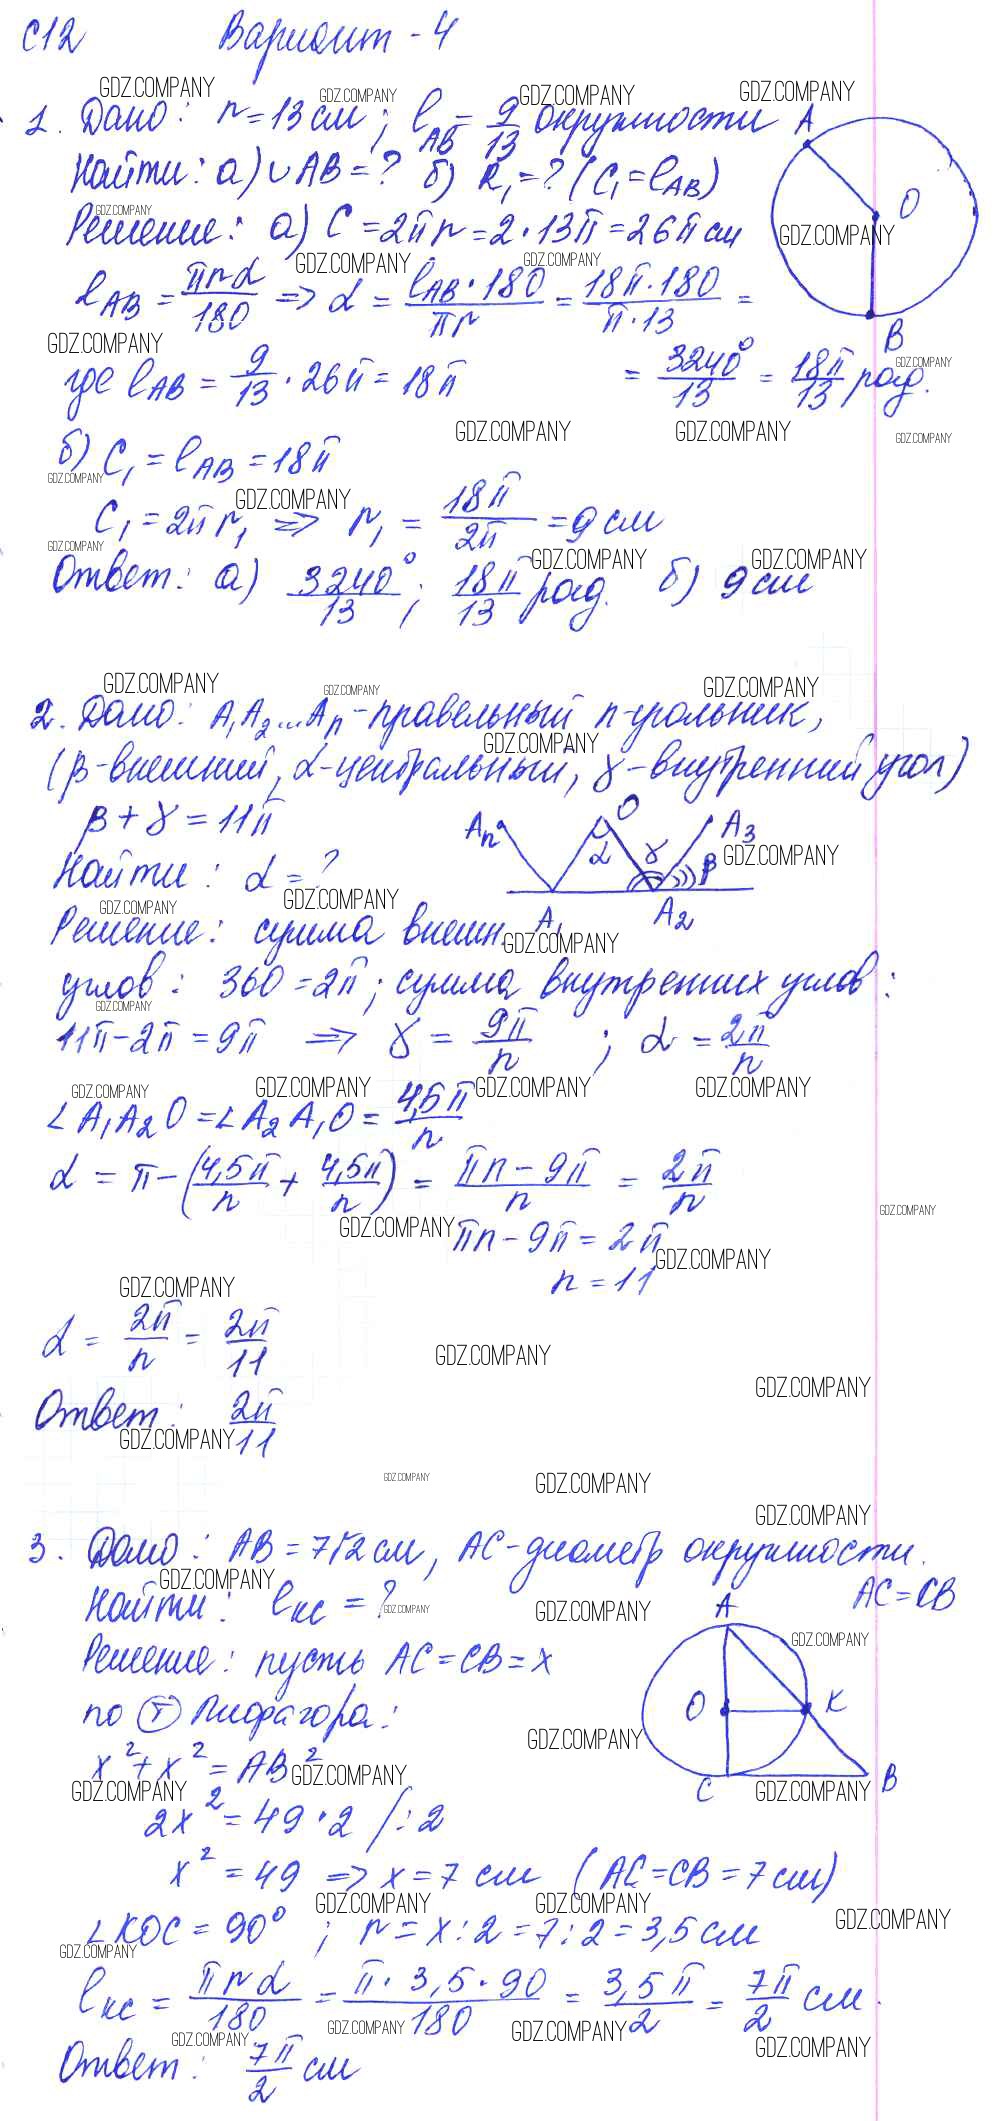 С12 Вариант - 4
1. Дано: r = 13 см; l_AB = 9/13 окружности
Найти: а) ∪AB = ? б) R₁ = ? (C₁ = l_AB)
Решение: а) C = 2πr = 2·13π = 26π см
l_AB = πrα/180 => α = l_AB·180/πr = 18π·180/π·13 =
где l_AB = 9/13 · 26π = 18π = 3240°/13 = 18π/13 рад.
б) C₁ = l_AB = 18π
C₁ = 2πr₁ => r₁ = 18π/2π = 9 см
Ответ: а) 3240°/13; 18π/13 рад. б) 9 см
A
O
B
2. Дано: A₁A₂...Aₙ - правельный n-угольник,
(β-внешний, α-центральный, γ-внутренний угол)
β + γ = 11π
Найти: α = ?
Решение: сумма внешн.
углов: 360 = 2π; сумма внутренних углов:
11π - 2π = 9π => γ = 9π/n ; α = 2π/n
∠A₁A₂O = ∠A₂A₁O = 4,5π/n
α = π - (4,5π/n + 4,5π/n) = πn - 9π/n = 2π/n
πn - 9π = 2π
n = 11
α = 2π/n = 2π/11
Ответ: 2π/11
Aₙ O A₃
α γ β
A₁ A₂
3. Дано: AB = 7√2 см, AC - диаметр окружности.
AC = CB
Найти: l_KC = ?
Решение: пусть AC = CB = x
по Т Пифагора:
x² + x² = AB²
2x² = 49·2 /:2
x² = 49 => x = 7 см (AC = CB = 7 см)
∠KOC = 90° ; r = x:2 = 7:2 = 3,5 см
l_KC = πrα/180 = π·3,5·90/180 = 3,5π/2 = 7π/2 см.
Ответ: 7π/2 см
A
O K
C B
GDZ.COMPANY